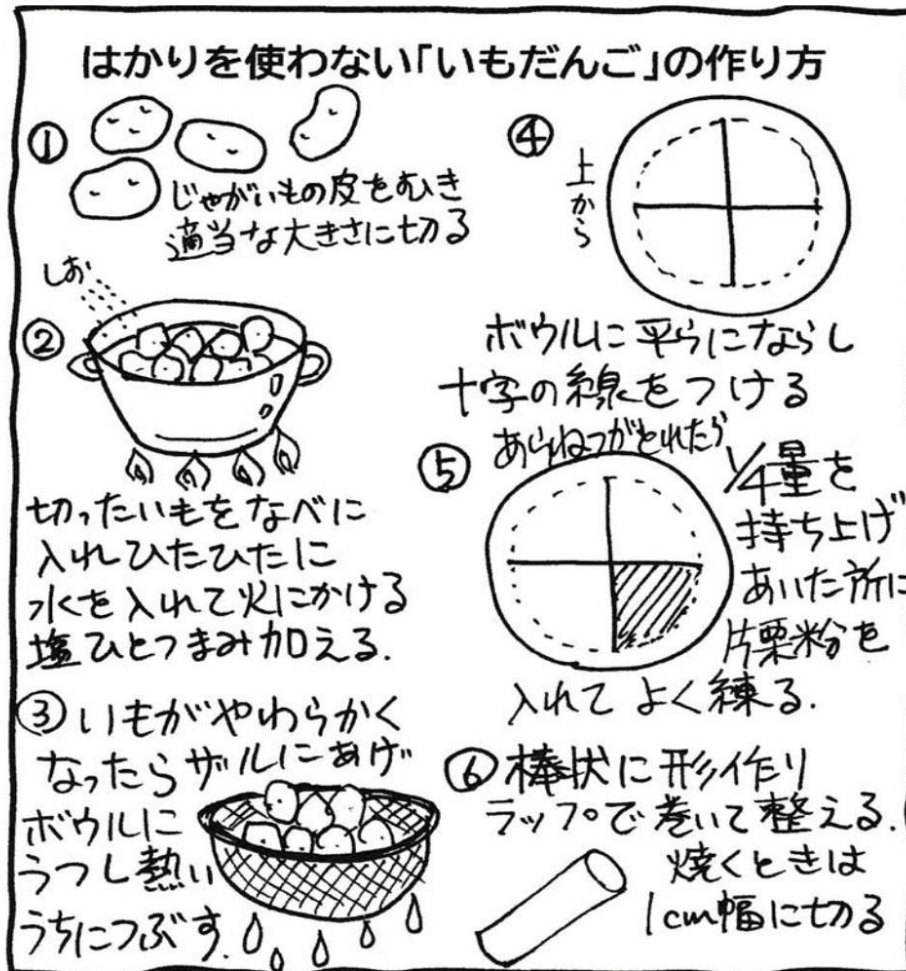 はかりを使わない「いもだんご」の作り方
①
じゃがいもの皮をむき
適当な大きさに切る
しお
②
切ったいもをなべに
入れひたひたに
水を入れて火にかける
塩ひとつまみ加える.
③いもがやわらかく
なったらザルにあげ
ボウルに
うつし熱い
うちにつぶす.
④
上から
ボウルに平らにならし
十字の線をつける
⑤
あらねつがとれたら
1/4量を
持ち上げ
あいた所に
片栗粉を
入れてよく練る.
⑥棒状に形作り
ラップで巻いて整える.
焼くときは
1cm幅に切る